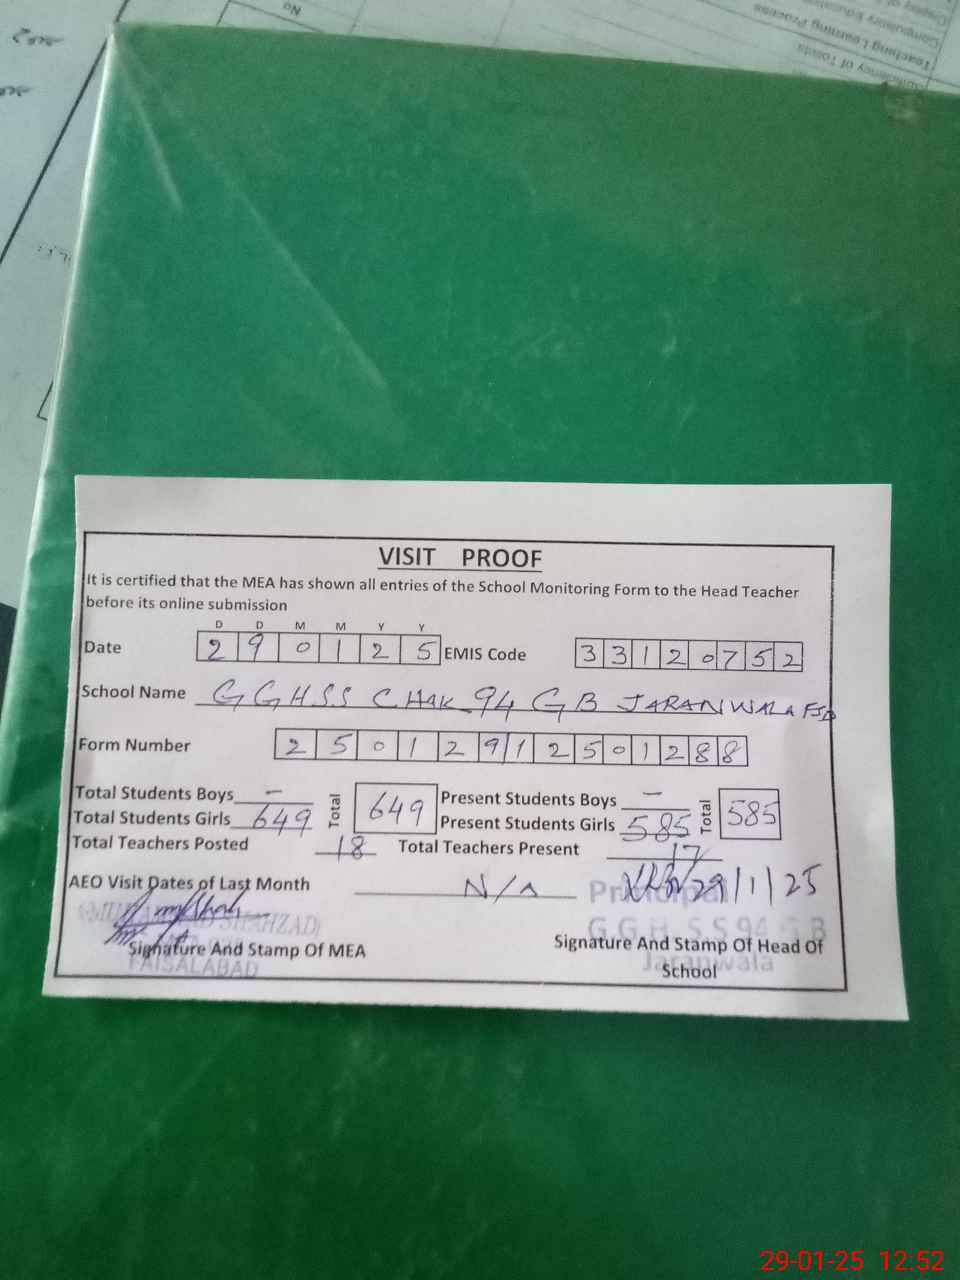 No
Sufficiency of Toilets
Teaching Learning Process
VISIT PROOF
It is certified that the MEA has shown all entries of the School Monitoring Form to the Head Teacher
before its online submission
D D M M Y Y
Date 2 9 0 1 2 5 EMIS Code 3 3 1 2 0 7 5 2
School Name G G H S S CHAK 94 G B JARANWALA FSD
Form Number 2 5 0 1 2 9 1 2 5 0 1 2 8 8
Total Students Boys - Total 649 Present Students Boys - Total 585
Total Students Girls 649 Present Students Girls 585
Total Teachers Posted 18 Total Teachers Present 17
AEO Visit Dates of Last Month N/A 29/1/25
Principal
(MUHAMMAD SHAHZAD) G.G.H.S.S 94 G B
Signature And Stamp Of MEA Signature And Stamp Of Head Of
FAISALABAD Jaranwala
School
29-01-25 12:52